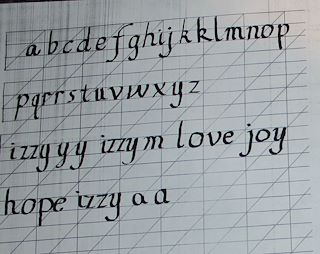 a b c d e f g h i j k k l m n o p
p q r r s t u v w x y z
izzy y y izzy m love joy
hope izzy a a